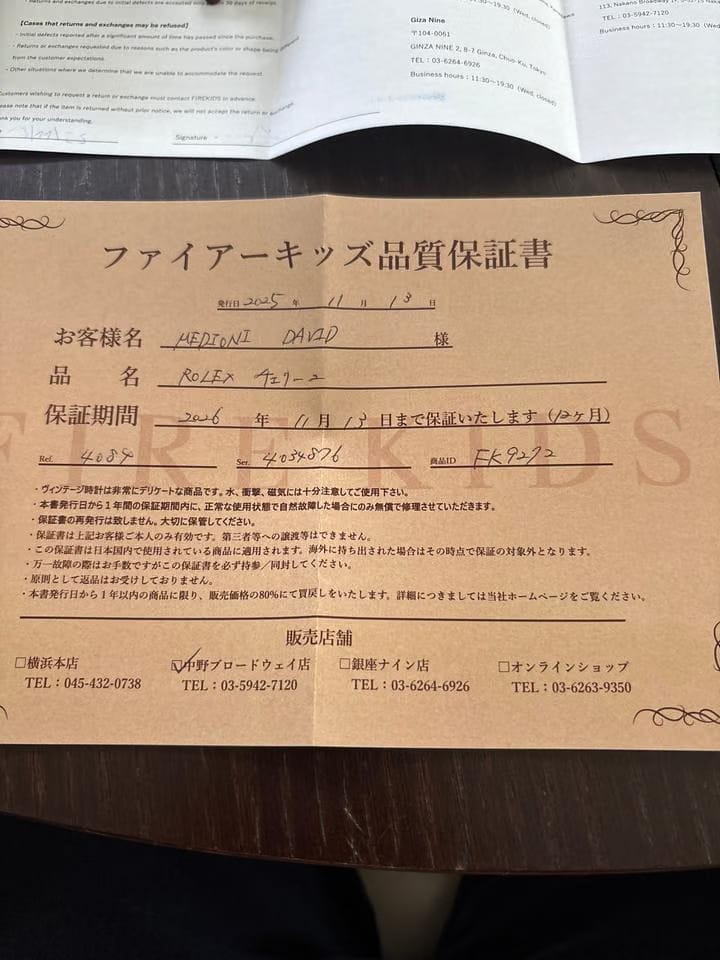 - Returns and exchanges due to initial defects are accepted
30 days of receipt.
[Cases that returns and exchanges may be refused]
- Initial defects reported after a significant amount of time has passed since the purchase.
- Returns or exchanges requested due to reasons such as the product's color or shape being
from the customer expectations.
- Other situations where we determine that we are unable to accommodate the request.
Customers wishing to request a return or exchange must contact FIREKIDS in advance.
Please note that if the item is returned without prior notice, we will not accept the return or exchange.
Thank you for your understanding.
Signature
11:30~19:30 (Wed. closed)
Giza Nine
〒104-0061
GINZA NINE 2, 8-7 Ginza, Chuo-Ku, Tokyo
TEL : 03-6264-6926
Business hours : 11:30~19:30 (Wed. closed)
113, Nakano Broadway
TEL : 03-5942-7120
Business hours : 11:30~19:30 (Wed.
ファイアーキッズ品質保証書
発行日 2025 年 11 月 13 日
お客様名 MEDIONI DAVID 様
品 名 ROLEX チェリーニ
保証期間 2026 年 11 月 13 日まで保証いたします (12ヶ月)
FIRE KIDS
Ref. 4084 Ser. 4034876 商品ID FK9272
・ヴィンテージ時計は非常にデリケートな商品です。水、衝撃、磁気には十分注意してご使用下さい。
・本書発行日から1年間の保証期間内に、正常な使用状態で自然故障した場合にのみ無償で修理させていただきます。
・保証書の再発行は致しません。大切に保管してください。
・保証書は上記お客様ご本人のみ有効です。第三者等への譲渡等はできません。
・この保証書は日本国内で使用されている商品に適用されます。海外に持ち出された場合はその時点で保証の対象外となります。
・万一故障の際はお手数ですがこの保証書を必ず持参/同封してください。
・原則として返品はお受けしておりません。
・本書発行日から1年以内の商品に限り、販売価格の80%にて買戻しをいたします。詳細につきましては当社ホームページをご覧ください。
販売店舗
□横浜本店 ☑中野ブロードウェイ店 □銀座ナイン店 □オンラインショップ
TEL：045-432-0738 TEL：03-5942-7120 TEL：03-6264-6926 TEL：03-6263-9350